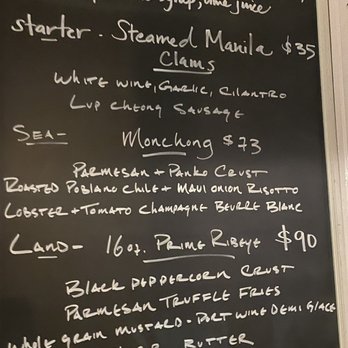 syrup, lime juice
starter. Steamed Manila $35
Clams
White wine, Garlic, Cilantro
Lup Cheong Sausage
Sea- Monchong $73
Parmesan + Panko Crust
Roasted Poblano Chile + Maui Onion Risotto
Lobster + Tomato Champagne Beurre Blanc
Land- 16oz. Prime Ribeye $90
Black Peppercorn Crust
Parmesan Truffle Fries
Whole grain mustard - Port wine Demi Glace
Butter